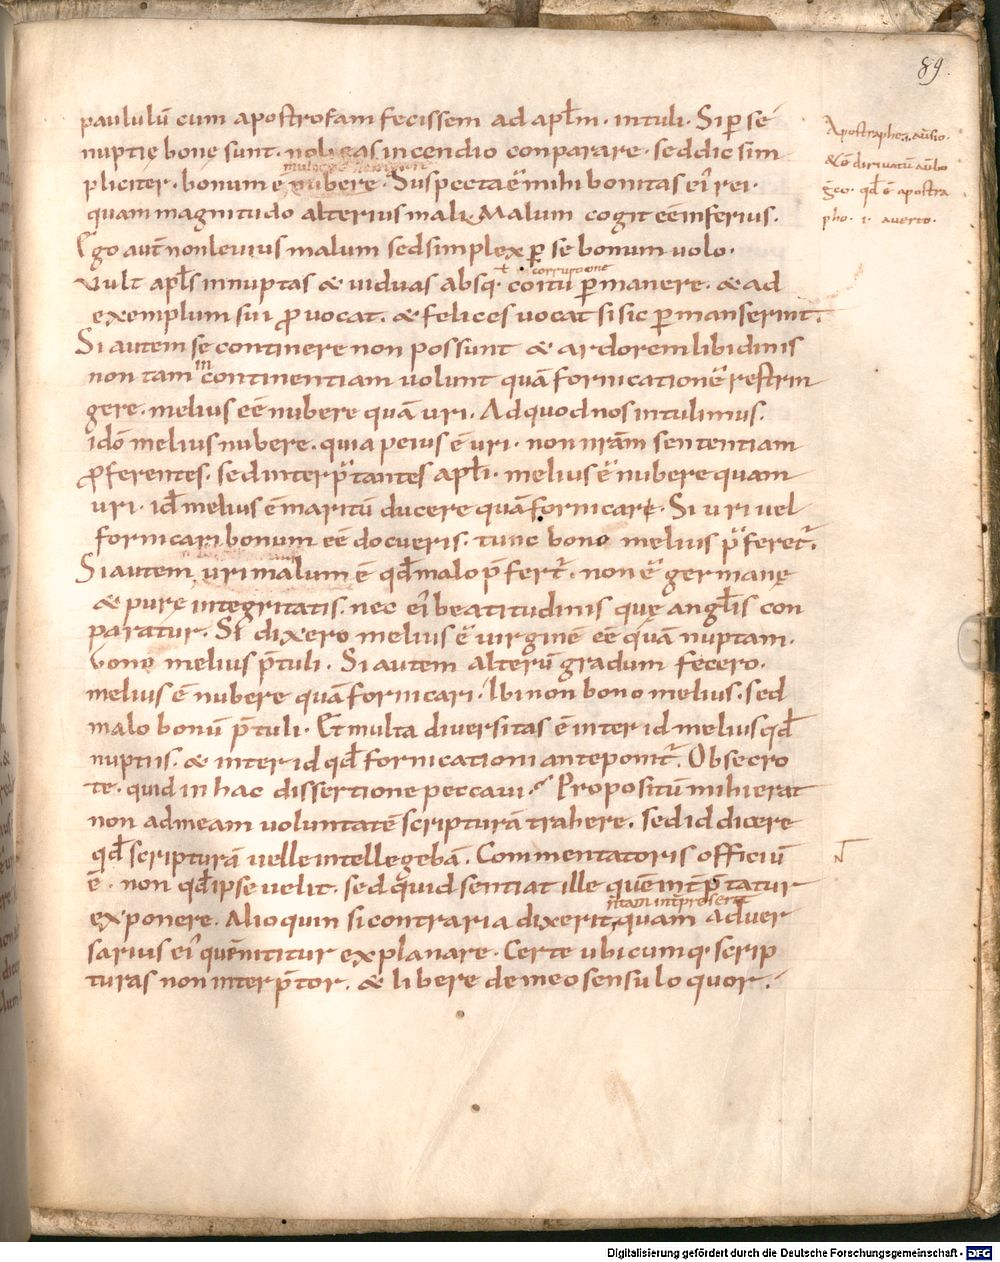 89.
paululū cum apostrofam fecissem ad apłm · intuli · Si ꝑ sé
nuptię bonę sunt · noli eas incendio conparare · sed dic sim
pliciter · bonum ē nubere · Suspecta ē mihi bonitas eı̄ rei ·
quam magnitudo alterius mali · Malum cogit eē inferius ·
Ego aut̄ non leuius malum sed simplex ꝑ se bonum uolo ·
ł corruptione
Vult apłs innuptas & uiduas absq· coitu ꝑmanere · & ad
exemplum sui ꝓuocat · & felices uocat si sic ꝑmanserint ·
Si autem se continere non possunt & ardorem libidinis
in
non tam continentiam uolunt quā fornicationē restrin
gere · melius eē nubere quā uri · Ad quod nos intulimus ·
idō melius nubere · quia peius ē uri · non nr̄am sententiam
ꝓferentes · sed interp̄tantes apłi · melius ē nubere quam
uri · id ̄ melius ē maritū ducere quā fornicare · Si uri uel
fornicari bonum eē docueris · tunc bono melius p̄feret̄ ·
Si autem uri malum ē qđ malo p̄fert̄ · non ē germanę
& purę integritatis · nec eı̄ beatitudinis quę angłis con
paratur · Si dixero melius ē uirginē eē quā nuptam ·
bono melius p̄tuli · Si autem alterū gradum fecero ·
melius ē nubere quā fornicari · Ibi non bono melius · sed
malo bonū p̄tuli · Et multa diuersitas ē inter id melius qđ
nuptiis · & inter id qđ fornicationi anteponit̄ · Obsecro
te · quid in hac dissertione peccaui · Propositū mihi erat
non ad meam uoluntatē scripturā trahere · sed id dicere
qđ scripturā uelle intellegebā · Commentatoris officiū
ē · non qđ ipse uelit · sed quid sentiat ille quē int̄p̄tatur
exponere · Alioquin si contraria dixerit quam aduer
sarius eı̄ quē nititur explanare · Certe ubicumq· scrip
turas non interp̄tor · & libere de meo sensu loquor ·
&cō diriuatū
ḡco · qđ ē apostra
pho · i · auerto ·
Digitalisierung gefördert durch die Deutsche Forschungsgemeinschaft - DFG